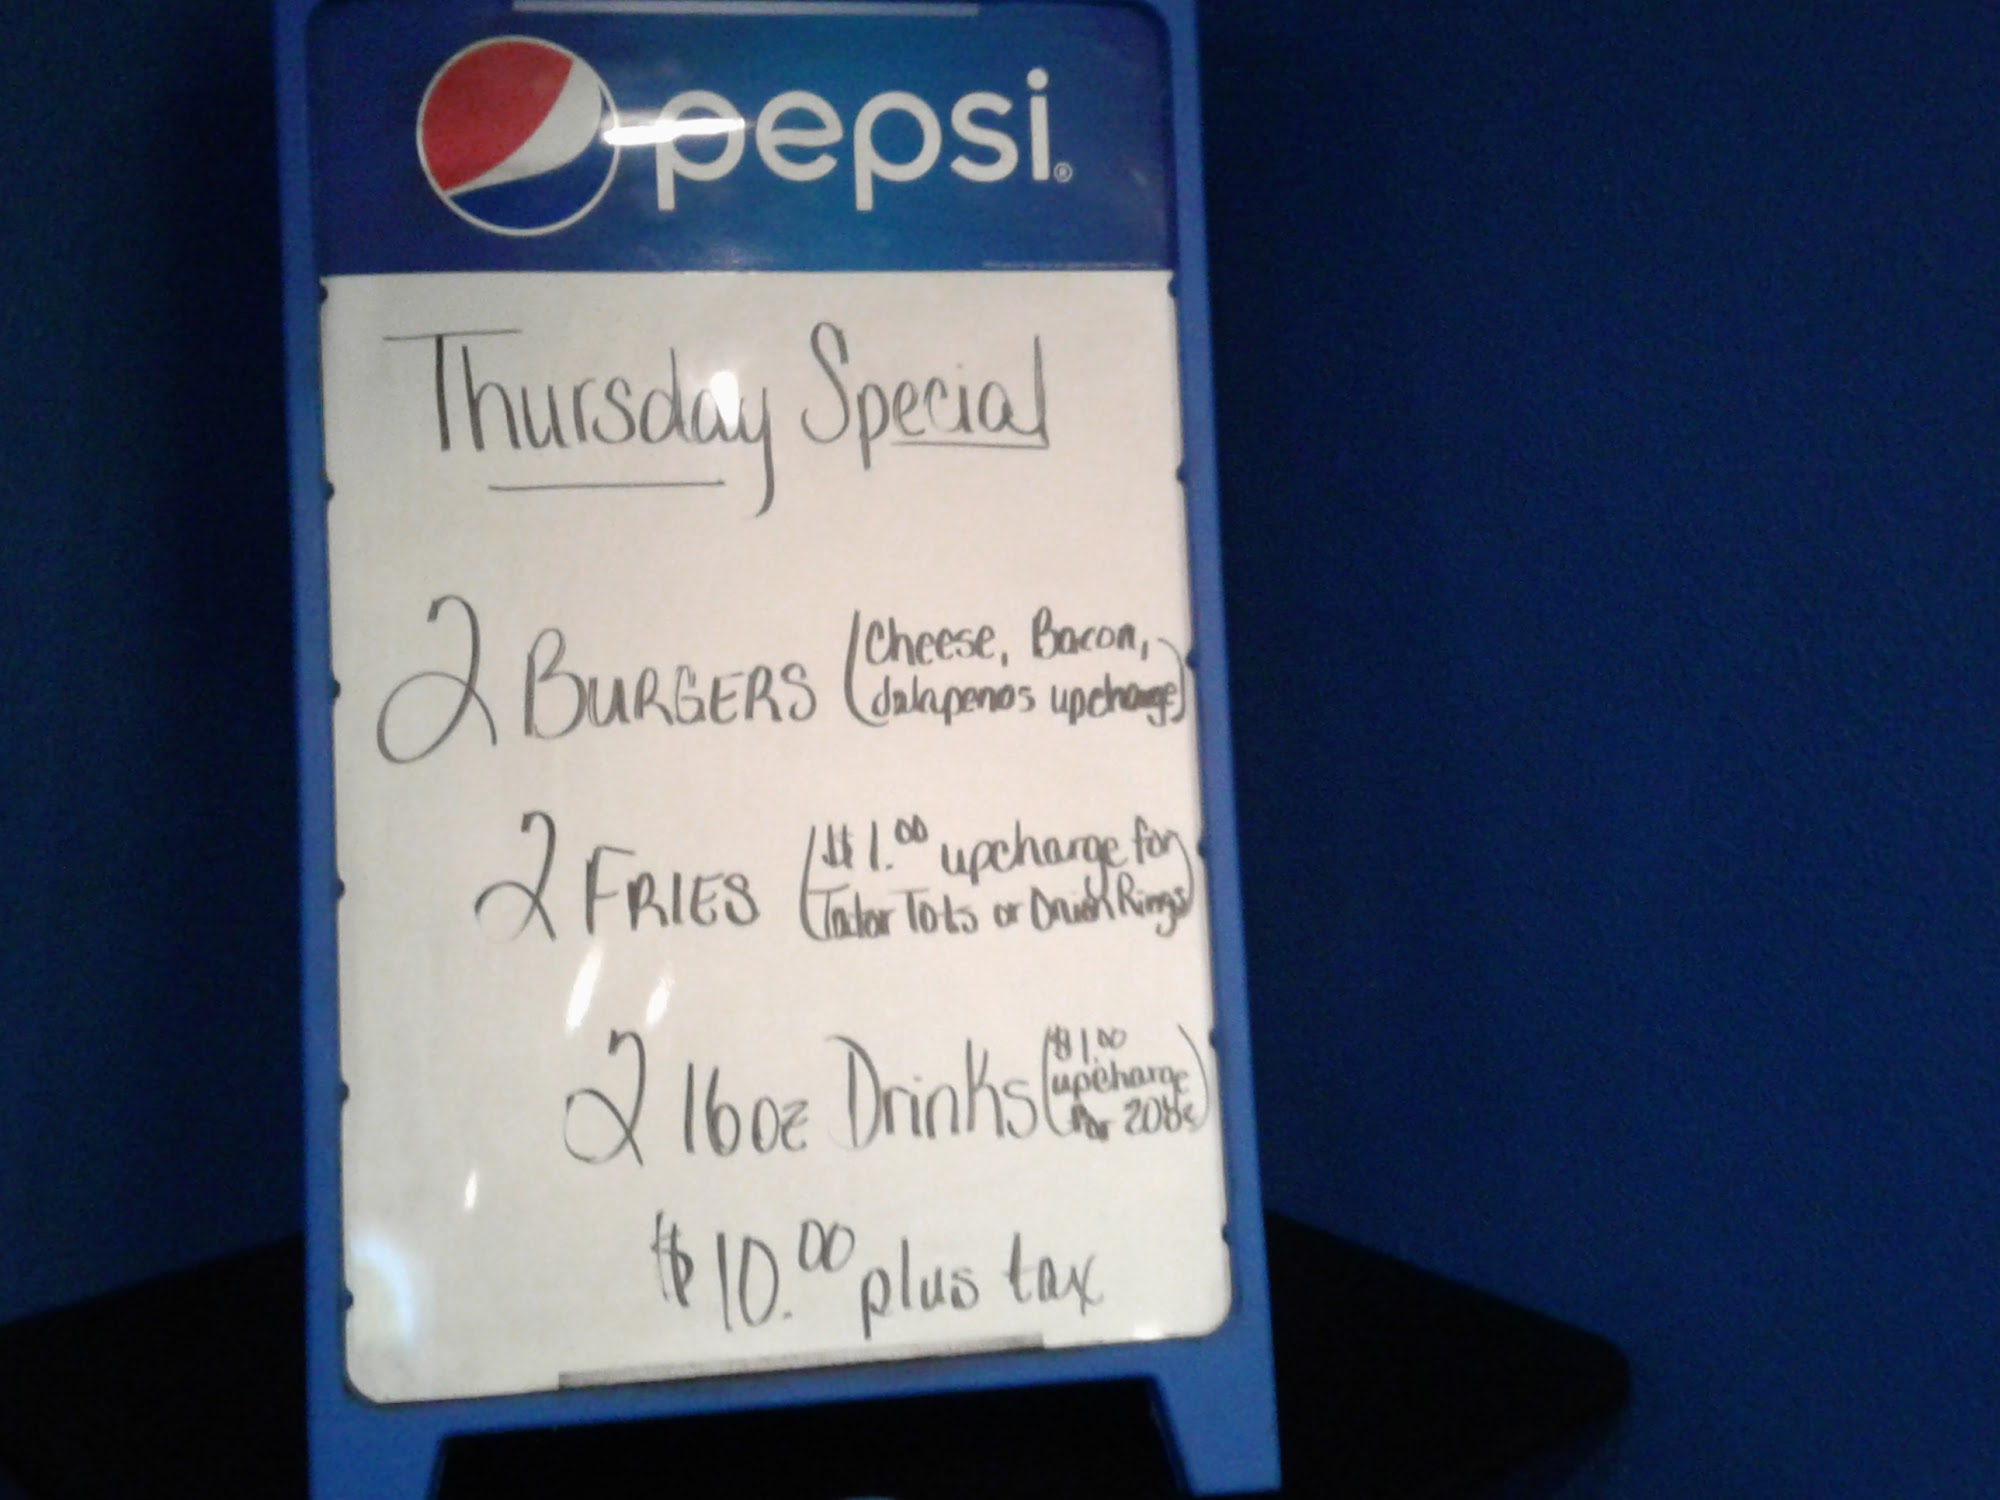 pepsi®
Thursday Special
2 BURGERS (Cheese, Bacon,
Jalapenos upcharge)
2 FRIES ($1.00 upcharge for
Tator Tots or Onion Rings)
2 16oz Drinks ($1.00
upcharge
for 20oz)
$10.00 plus tax